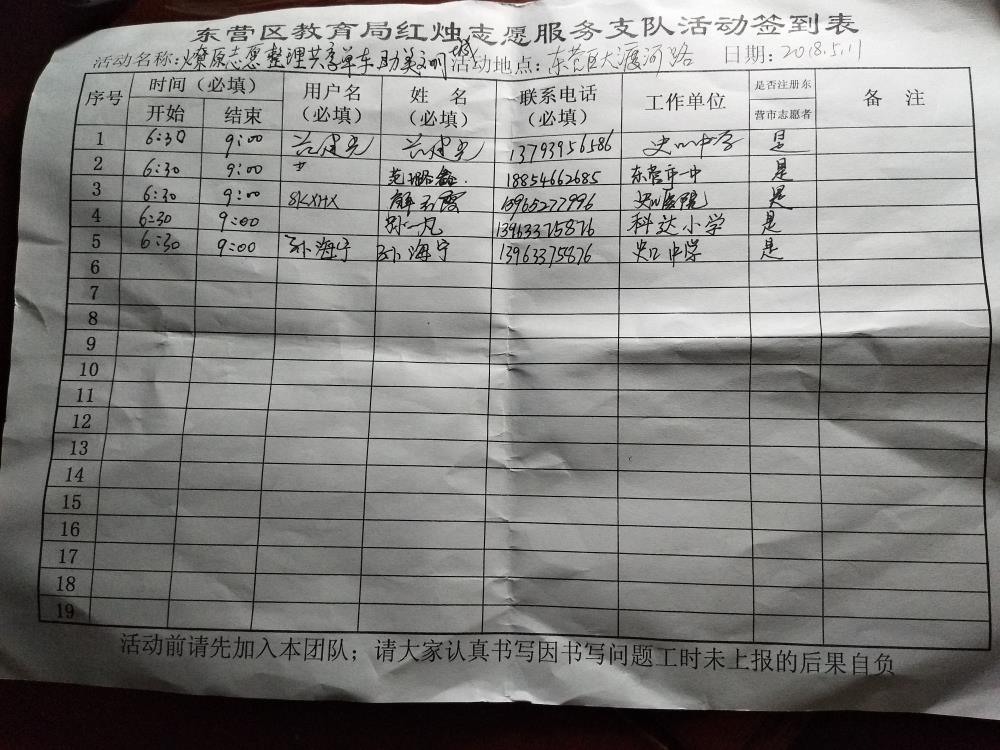 东营区教育局红烛志愿服务支队活动签到表
活动名称：燎原志愿整理共享单车助美文明城 活动地点：东营区大渡河路 日期：2018.5.11
序号 时间（必填） 用户名（必填） 姓 名（必填） 联系电话（必填） 工作单位 是否注册东营市志愿者 备 注
开始 结束
1 6:30 9:00 13793956586 史口中学 是
2 6:30 9:00 18854662685 东营市一中 是
3 6:30 9:00 8KXHX 15965277996 史口医院 是
4 6:30 9:00 孙一凡 13963375876 科达小学 是
5 6:30 9:00 孙海宁 孙海宁 13963375876 史口中学 是
6
7
8
9
10
11
12
13
14
15
16
17
18
19
活动前请先加入本团队；请大家认真书写因书写问题工时未上报的后果自负